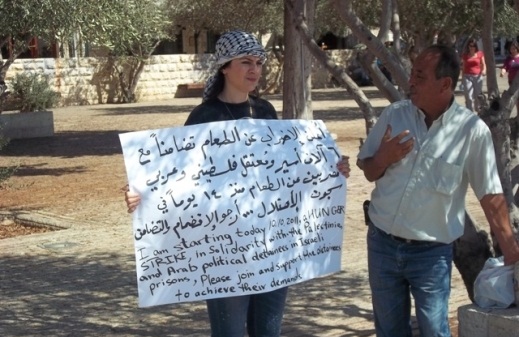 الاضراب عن الطعام تضامناً مع
آلاف أسير ومعتقل فلسطيني وعربي
مضربين عن الطعام منذ ١٢ يوماً في
سجون الاحتلال ... أرجو الانضمام والتضامن
I am starting today 10.10.2011 a HUNGER
STRIKE, in Solidarity with the Palestinian
and Arab political detainees in Israeli
prisons, Please join and support the detainees
to achieve their demands